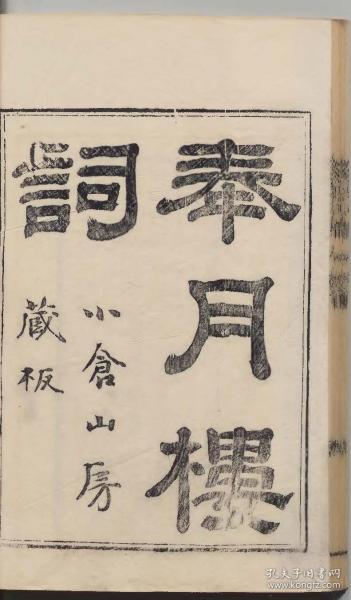 奉月樓
詞
小倉山房
藏板
孔夫子旧书网
www.kongfz.com